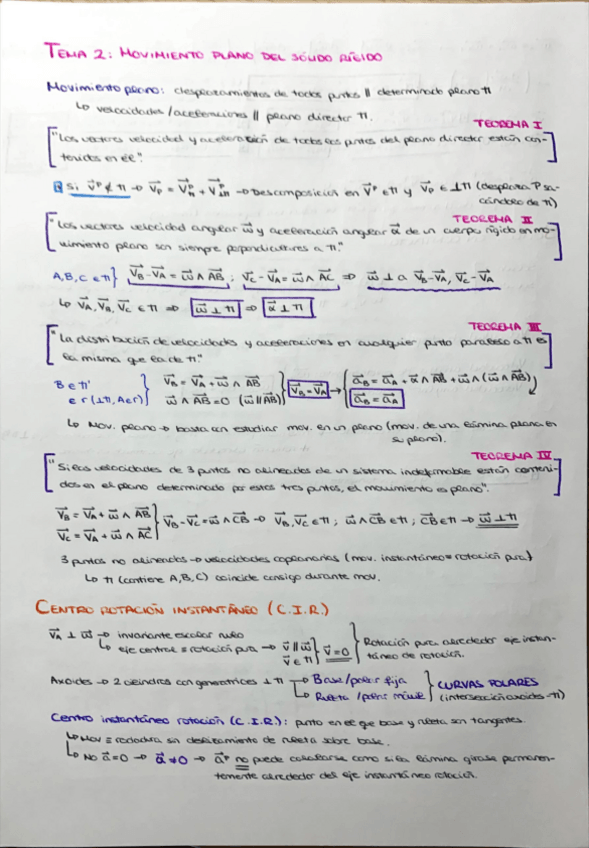 TEMA 2: MOVIMIENTO PLANO DEL SÓLIDO RÍGIDO
Movimiento plano: desplazamientos de todos puntos || determinado plano π
↳ velocidades/aceleraciones || plano director π.
TEOREMA I
"Los vectores velocidad y aceleración de todos los puntos del plano director están con-
tenidos en él".
Si v⃗ᴾ ∉ π → v⃗p = v⃗π + v⃗⊥π → Descomposición en v⃗ᴾ ∈ π y v⃗p ∈ ⊥π (desplaza P sa-
cándolo de π)
TEOREMA II
"Los vectores velocidad angular ω⃗ y aceleración angular α⃗ de un cuerpo rígido en mo-
vimiento plano son siempre perpendiculares a π."
A, B, C ∈ π} V⃗B - V⃗A = ω⃗ ∧ AB ; V⃗C - V⃗A = ω⃗ ∧ AC ⇒ ω⃗ ⊥ a V⃗B - V⃗A, V⃗C - V⃗A
↳ V⃗A, V⃗B, V⃗C ∈ π ⇒ ω⃗ ⊥ π ⇒ α⃗ ⊥ π
TEOREMA III
"La distribución de velocidades y aceleraciones en cualquier punto paralelo a π es
la misma que la de π."
B ∈ π' } V⃗B = V⃗A + ω⃗ ∧ AB } V⃗B = V⃗A → { a⃗B = a⃗A + α⃗ ∧ AB + ω⃗ ∧ (ω⃗ ∧ AB)
∈ r (⊥π, A∈r) ω⃗ ∧ AB = 0 (ω⃗ || AB) a⃗B = a⃗A
↳ Mov. plano → basta con estudiar mov. en un plano (mov. de una lámina plana en
su plano).
TEOREMA IV
"Si las velocidades de 3 puntos no alineados de un sistema indeformable están conteni-
dos en el plano determinado por estos tres puntos, el movimiento es plano".
V⃗B = V⃗A + ω⃗ ∧ AB } V⃗B - V⃗C = ω⃗ ∧ CB → V⃗B, V⃗C ∈ π ; ω⃗ ∧ CB ∈ π ; CB ∈ π → ω⃗ ⊥ π
V⃗C = V⃗A + ω⃗ ∧ AC
3 puntos no alineados → velocidades coplanarias (mov. instantáneo = rotación pura)
↳ π (contiene A, B, C) coincide consigo durante mov.
CENTRO ROTACIÓN INSTANTÁNEO (C.I.R.)
V⃗A ⊥ ω⃗ → invariante escalar nulo
↳ eje central ≡ rotación pura → v⃗ || ω⃗ } v⃗ = 0 } Rotación pura alrededor eje instan-
v⃗ ∈ π táneo de rotación.
Axoides → 2 cilindros con generatrices ⊥ π → Base/polar fija } CURVAS POLARES
↳ Ruleta/polar móvil (intersección axoides-π)
Centro instantáneo rotación (C.I.R.): punto en el que base y ruleta son tangentes.
↳ Mov ≡ rodadura sin deslizamiento de ruleta sobre base.
↳ No a⃗ = 0 → a⃗ ≠ 0 → a⃗ᴾ no puede calcularse como si la lámina girase permanen-
temente alrededor del eje instantáneo rotación.